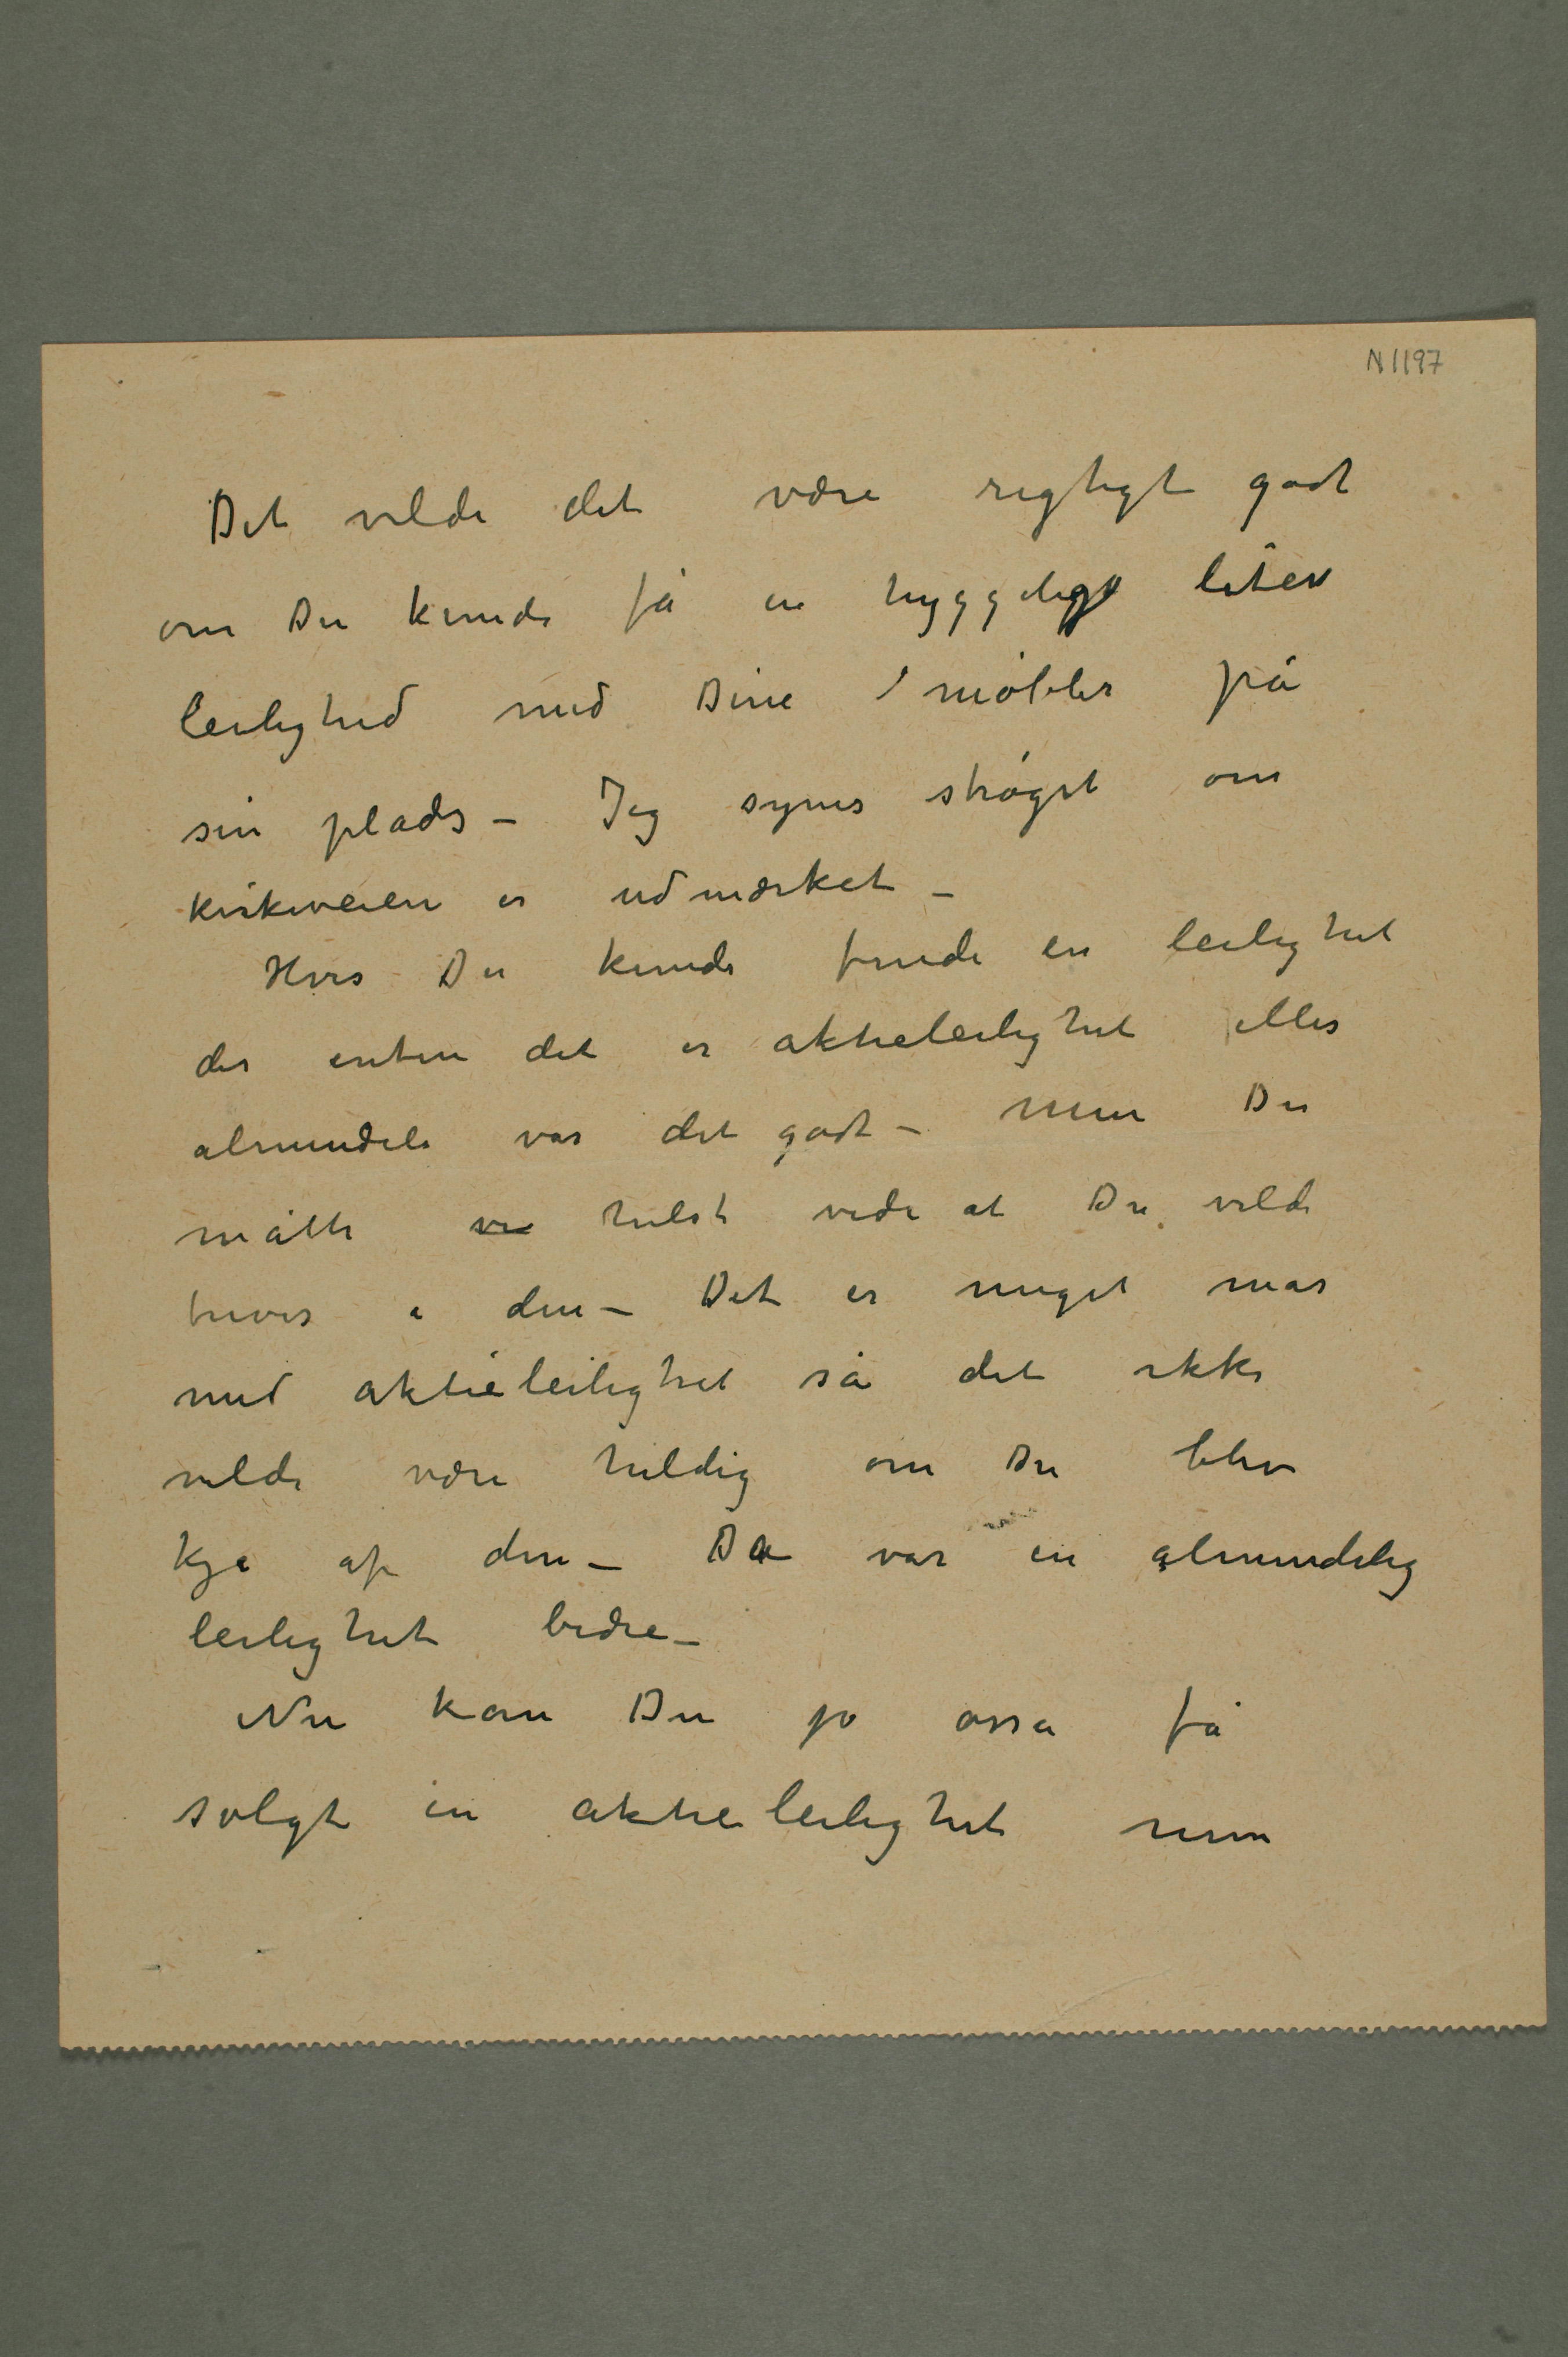 N 1197
Det vilde det være regtigt godt
om Du kunde få en hyggelig liten
leilighed med Dine møbler på
sin plads – Jeg synes strøget om
kirkeveien er udmærket –
Hvis Du kunde finde en leilighet
der enten det er aktieleilighet eller
almindeli var det godt – Men Du
måtte ve helst vide at Du vilde
trives i den – Det er meget mas
med aktieleilighet så det ikke
vilde være heldig om Du blev
kje af den – Da var en almindelig
leilighet bedre –
Nu kan Du jo osså få
solgt en aktieleilighet men